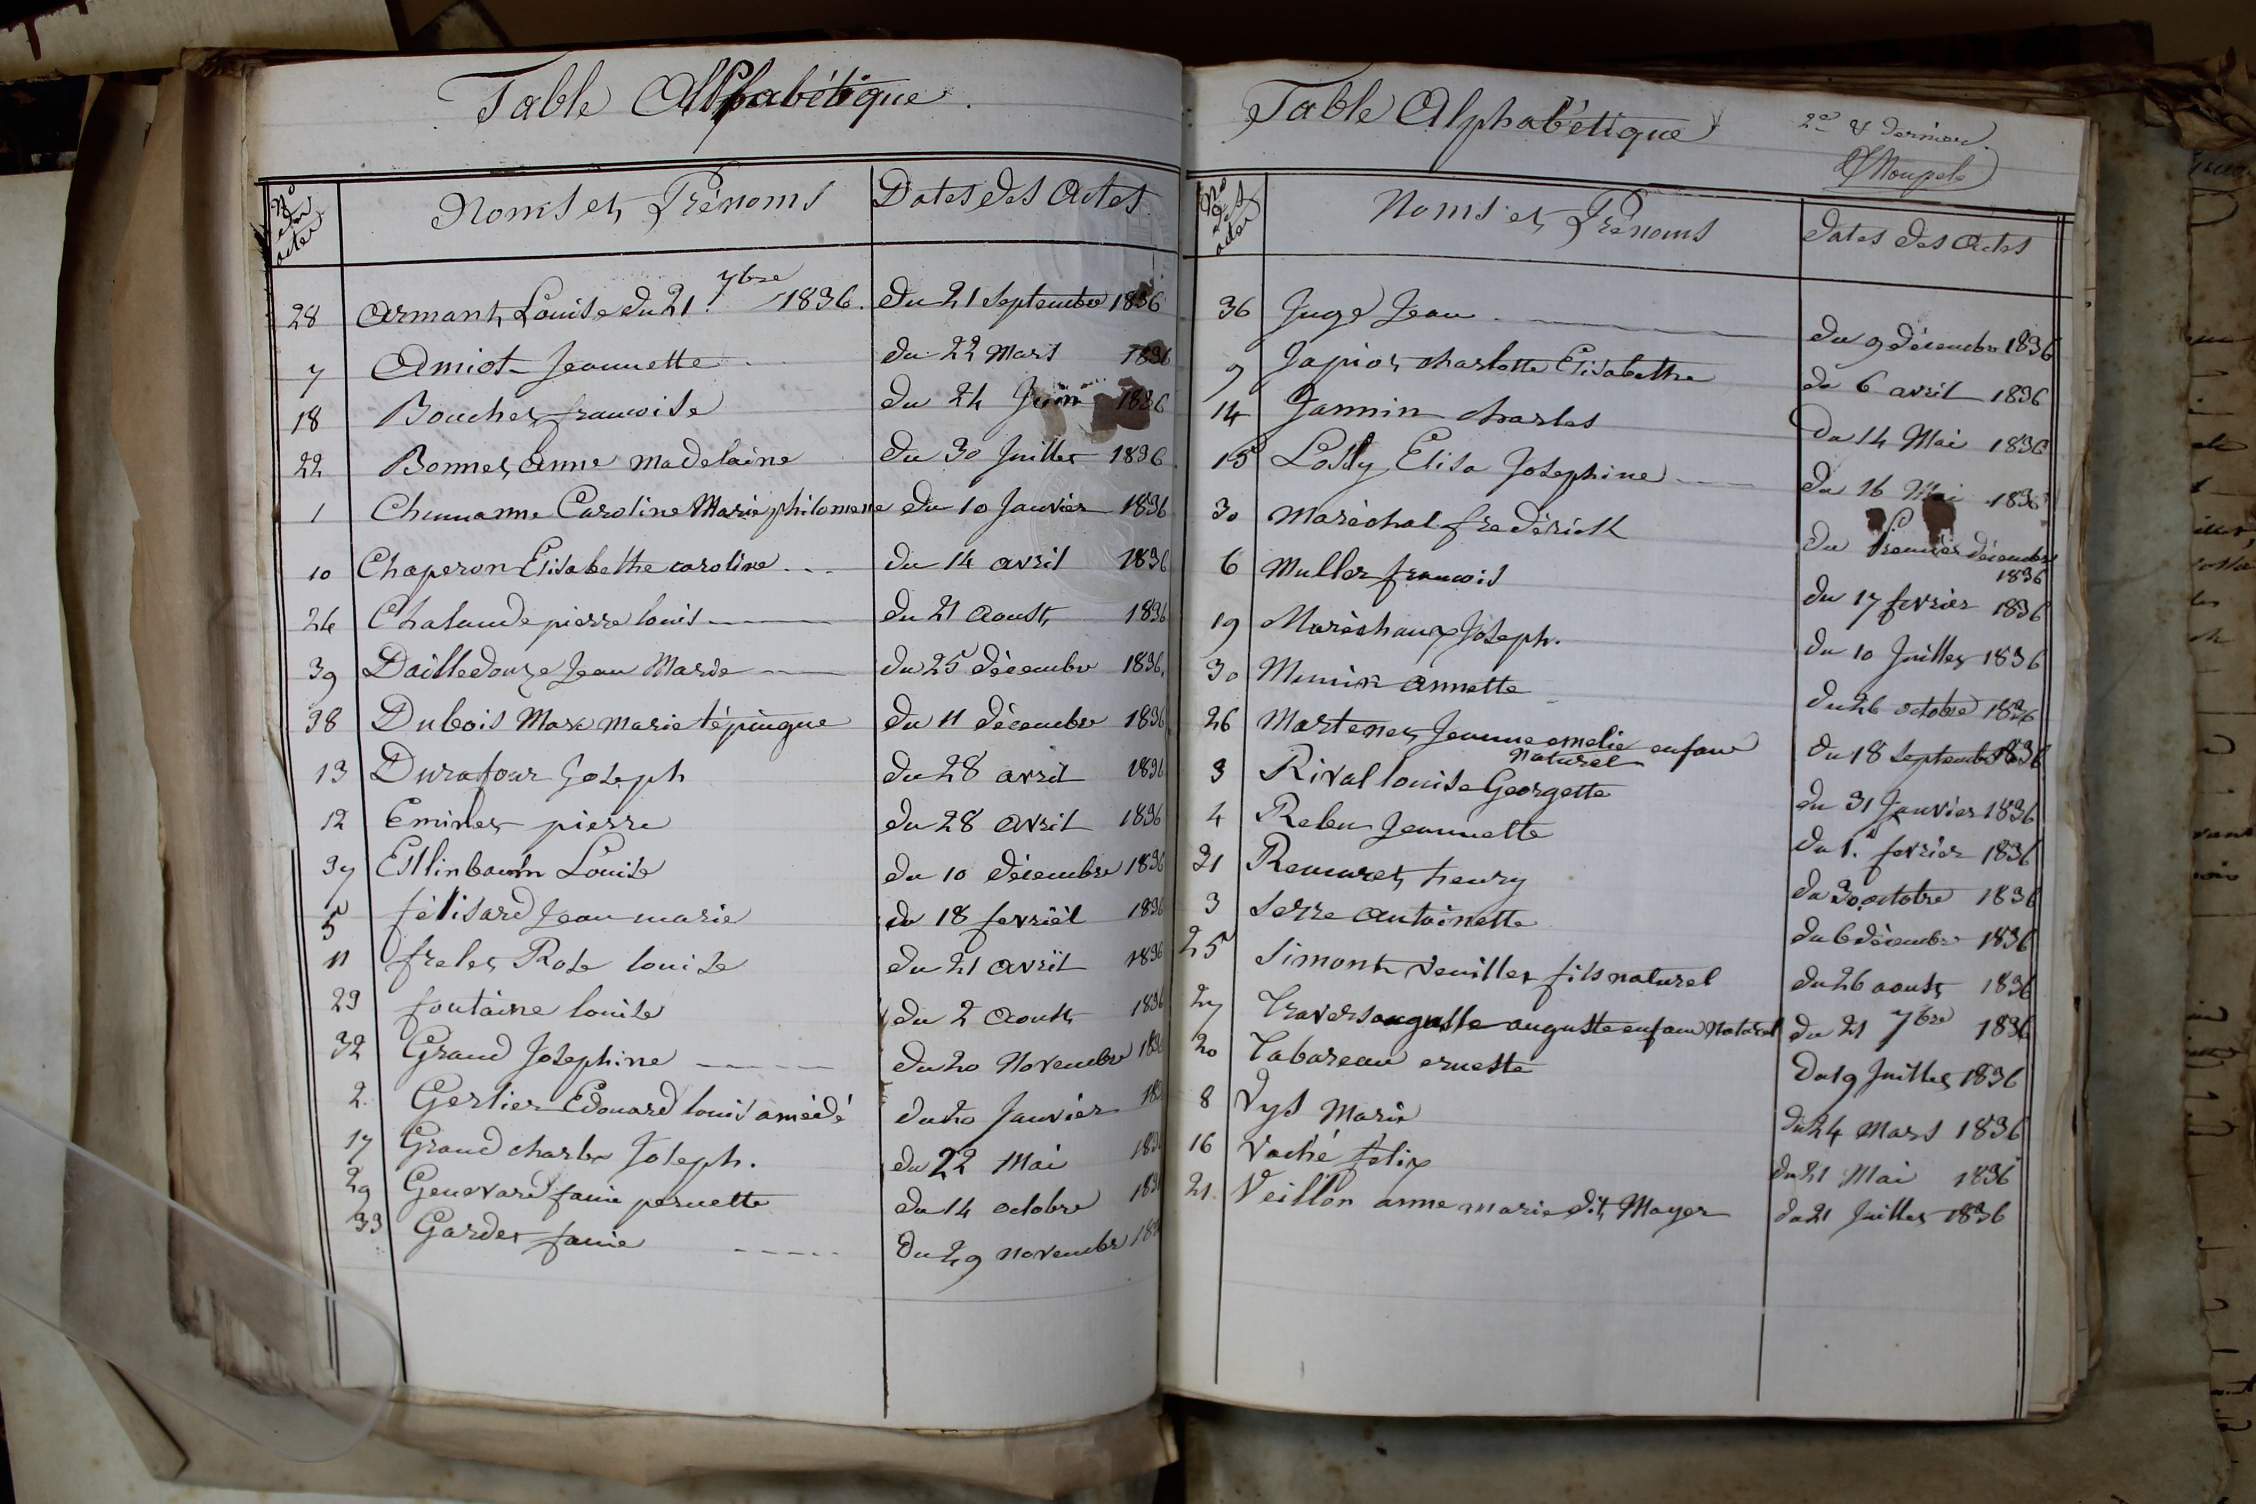 Table Alphabétique.
No des actes Noms et Prénoms Dates des Actes
28 Armant Louise du 21 7bre 1836. du 21 septembre 1836
7 Amiot Jeannette du 22 Mars 1836
18 Boucher francoise du 24 Juin 1836
22 Bonnet Anne Madelaine du 30 Juillet 1836
1 Caroline Marie philomene du 10 Janvier 1836
10 Chaperon Elisabethe caroline du 14 avril 1836
24 Chalande pierre louis du 21 Aoust 1836
39 Dailledouze Jean Marie du 25 décembre 1836.
38 Dubois Marc Marie du 11 décembre 1836
13 Durafour Joseph du 28 avril 1836
12 pierre du 28 avril 1836
37 Esslinbaum Louise du 10 décembre 1836
5 félisard Jean marie du 18 fevriel 1836
11 Rose louise du 21 avril 1836
29 fontaine louise du 2 Aoust 1836
32 Grand Josephine du 20 Novembre 1836
2. Gerlier Edouard louis amédé du 20 Janvier 183
17 Grand charles Joseph. du 22 Mai 183
29 Genevard fanie pernette du 14 octobre 183
33 Gardet fanie du 29 novembre 183
Table Alphabétique
2e & dernière.
No des actes Noms et Prénoms dates des Actes
36 Juge Jean du 9 décembre 1836
9 Japiot charlotte Elisabethe du 6 avril 1836
14 Jannin charles Du 14 Mai 1836
15 Lossy Elisa Josephine du 16 Mai 1836
30 Maréchal frederick du Premier décembre
1836
6 Muller francois du 17 fevrier 1836
19 Maréchaux Joseph. du 10 Juillet 1836
30 Munier annette du 26 octobre 1836
26 Martenet Jeanne emelie enfant
Naturel du 18 septembre 1836
3 Rival louise Georgette du 31 Janvier 1836
4 Rebu Jeannette du 1. fevrier 1836
21 henry du 30 octobre 1836
3 Serre antoinette du 6 décembre 1836
25 Simont Veuillet fils naturel du 26 aoust 1836
27 Travers auguste enfant Naturel du 21 7bre 1836
20 Tabareau erneste Du 19 Juillet 1836
8 Vys Marie du 24 Mars 1836
16 Vaché félix du 21 Mai 1836
21. Veillon anne marie dit Mayor du 21 Juillet 1836